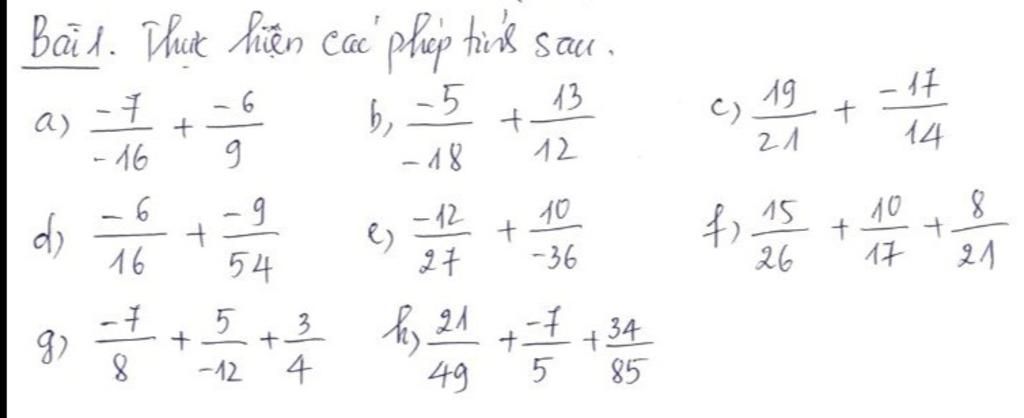 Bài 1. Thực hiện các phép tính sau.
a) -7/-16 + -6/9 b, -5/-18 + 13/12 c) 19/21 + -17/14
d) -6/16 + -9/54 e) -12/27 + 10/-36 f) 15/26 + 10/17 + 8/21
g) -7/8 + 5/-12 + 3/4 h) 21/49 + -7/5 + 34/85